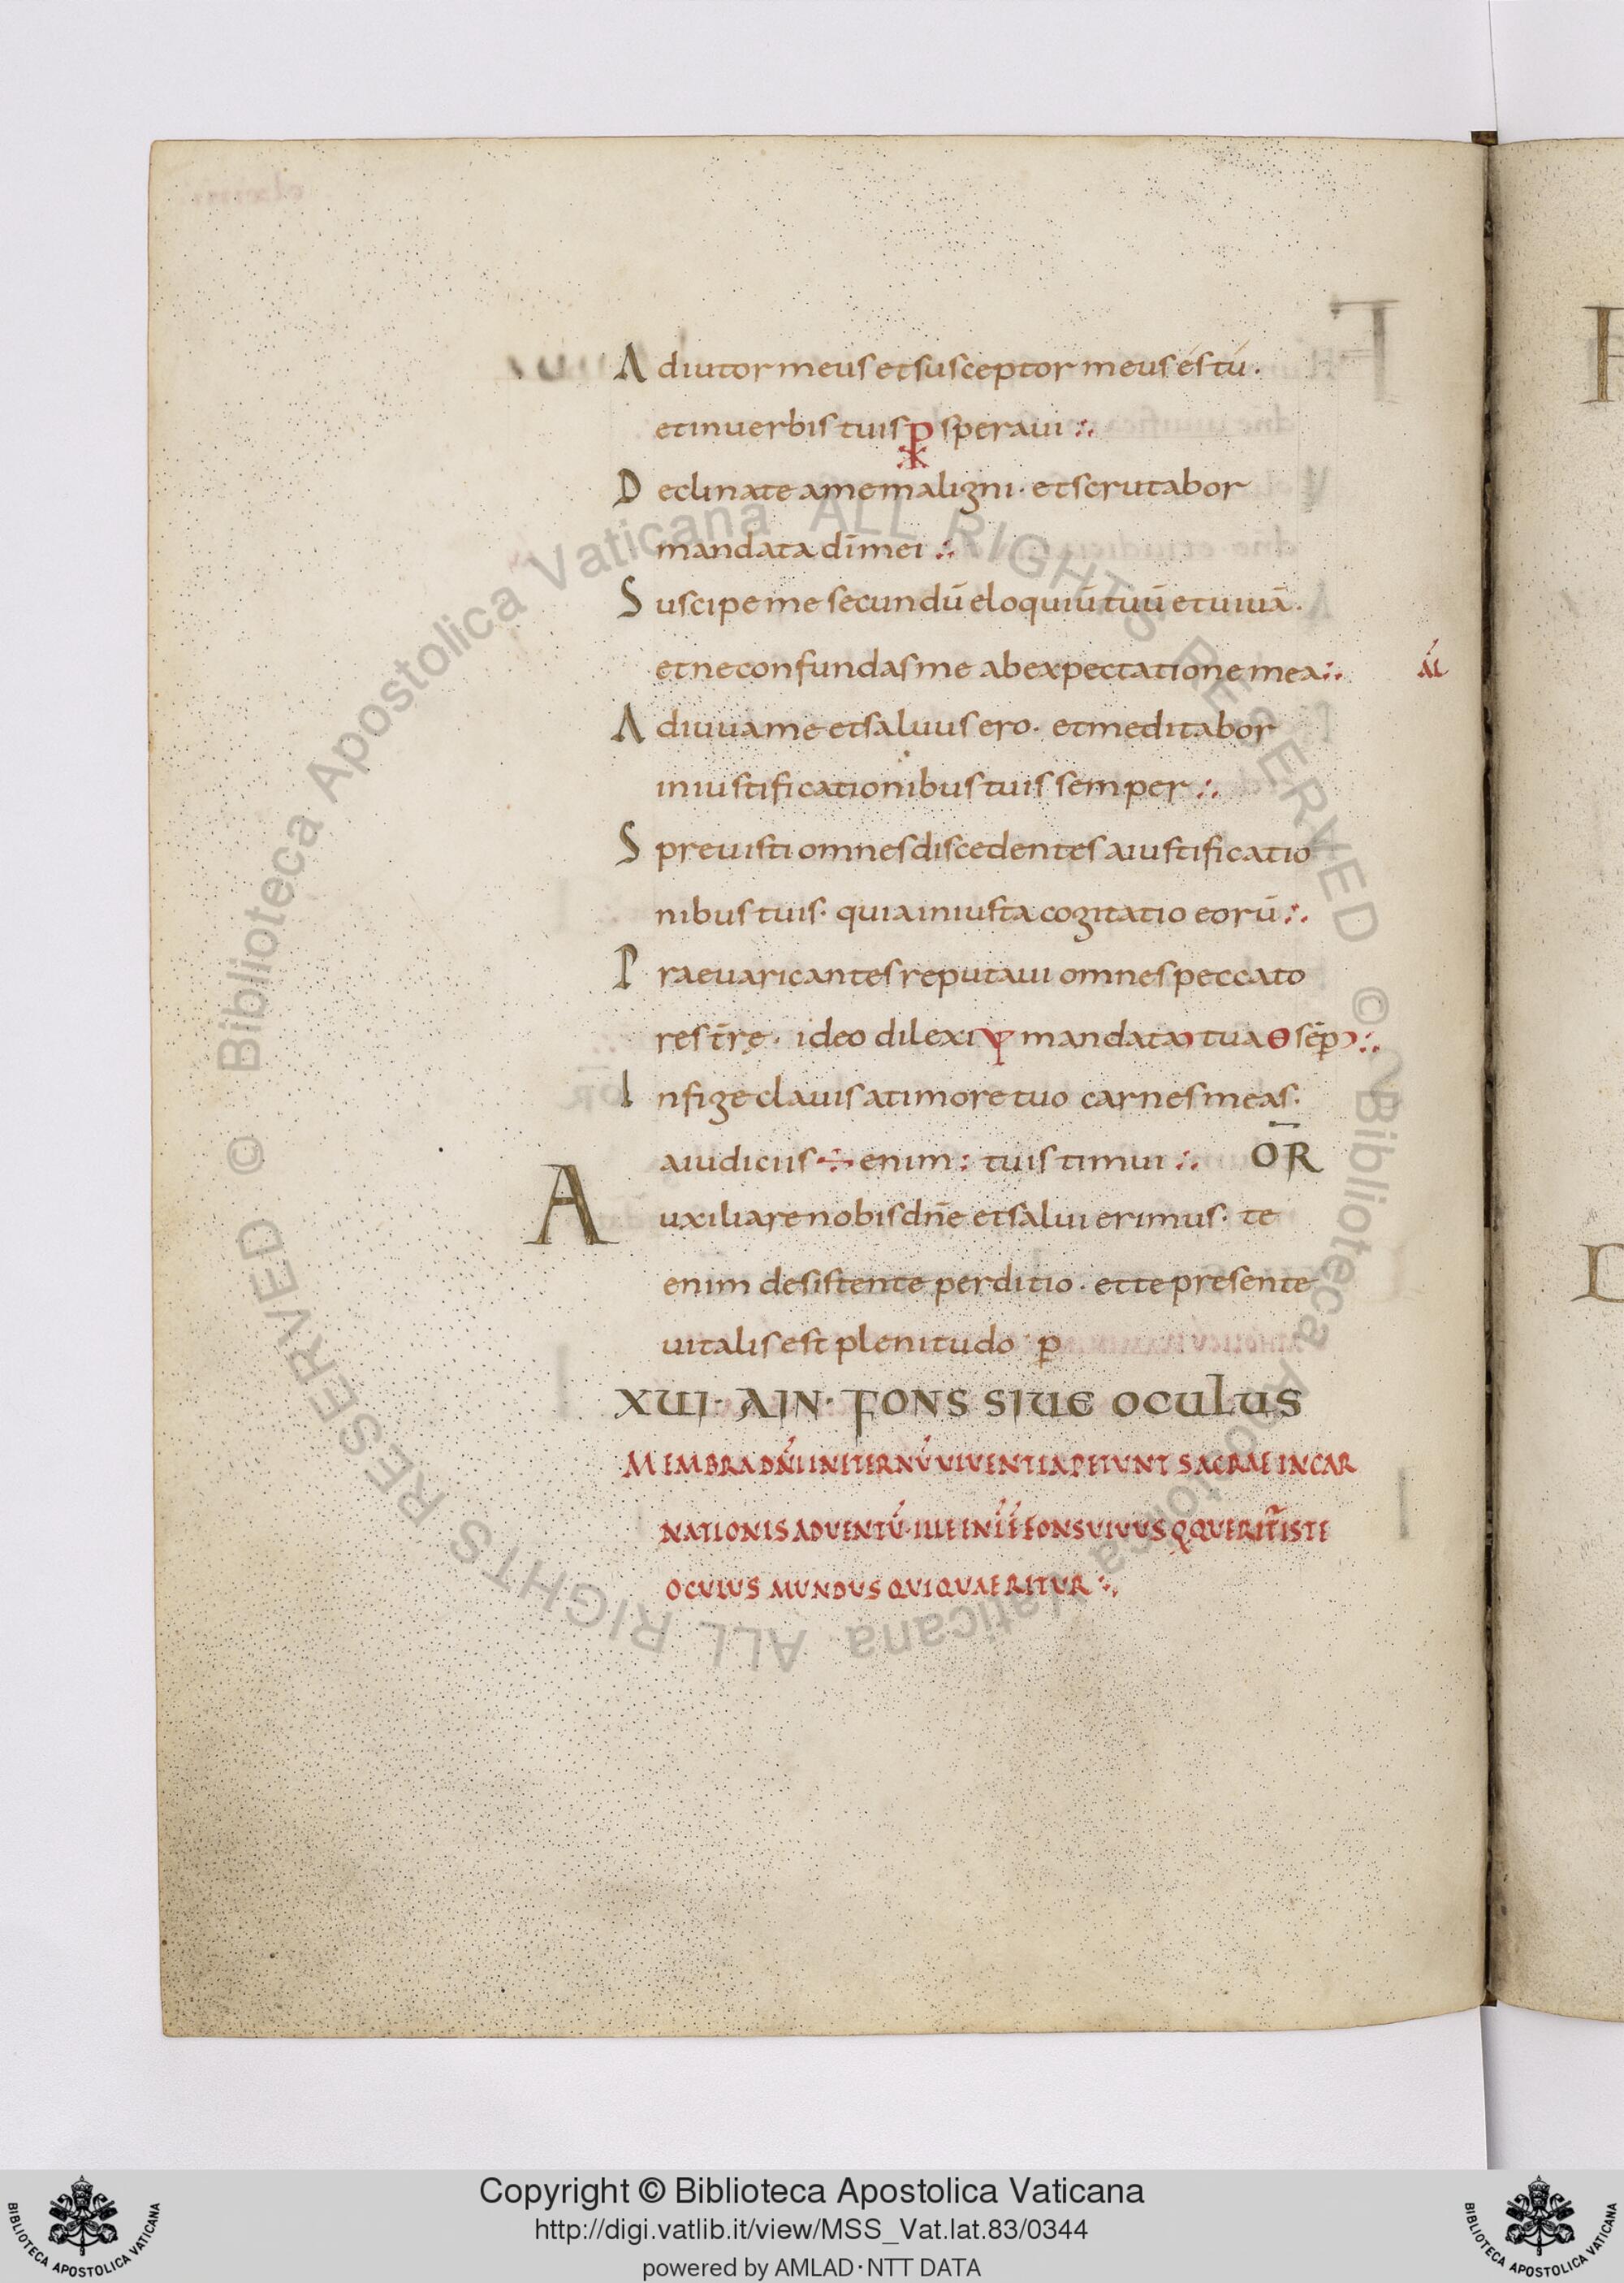 Adiutor meus et susceptor meus és tú.
et in uerbis tuis ⳩ speraui
Declinate a me maligni· et scrutabor
mandata dī mei
Suscipe me secundū eloquiū tuū et uiuā.
et ne confundas me ab expectatione mea
Adiuua me et saluus ero· et meditabor
in iustificationibus tuis semper
Spreuisti omnes discedentes a iustificatio
nibus tuis· quia iniusta cogitatio eorū
Praeuaricantes reputaui omnes peccato
res t̄rę· ideo dilexi mandata tua θ sēp
Infige clauis a timore tuo carnes meas·
a iudiciis ÷ enim : tuis timui ŌR
Auxiliare nobis dn̄e et salui erimus· te
enim desistente perditio· et te presente
uitalis est plenitudo p
XUI· AIN· FONS SIUE OCULUS
MEMBRA DN̄I IN ITERNŪ VIVENTIA PETUNT SACRAE INCAR
NATIONIS ADVENTŪ· ILLE
FONS VIVUS
QUERIT̄ ISTE
OCULUS MUNDUS QUI QUAERITUR
Copyright © Biblioteca Apostolica Vaticana
http://digi.vatlib.it/view/MSS_Vat.lat.83/0344
powered by AMLAD·NTT DATA
BIBLIOTECA APOSTOLICA VATICANA
BIBLIOTECA APOSTOLICA VATICANA
© Biblioteca Apostolica Vaticana ALL RIGHTS RESERVED
© Biblioteca Apostolica Vaticana ALL RIGHTS RESERVED